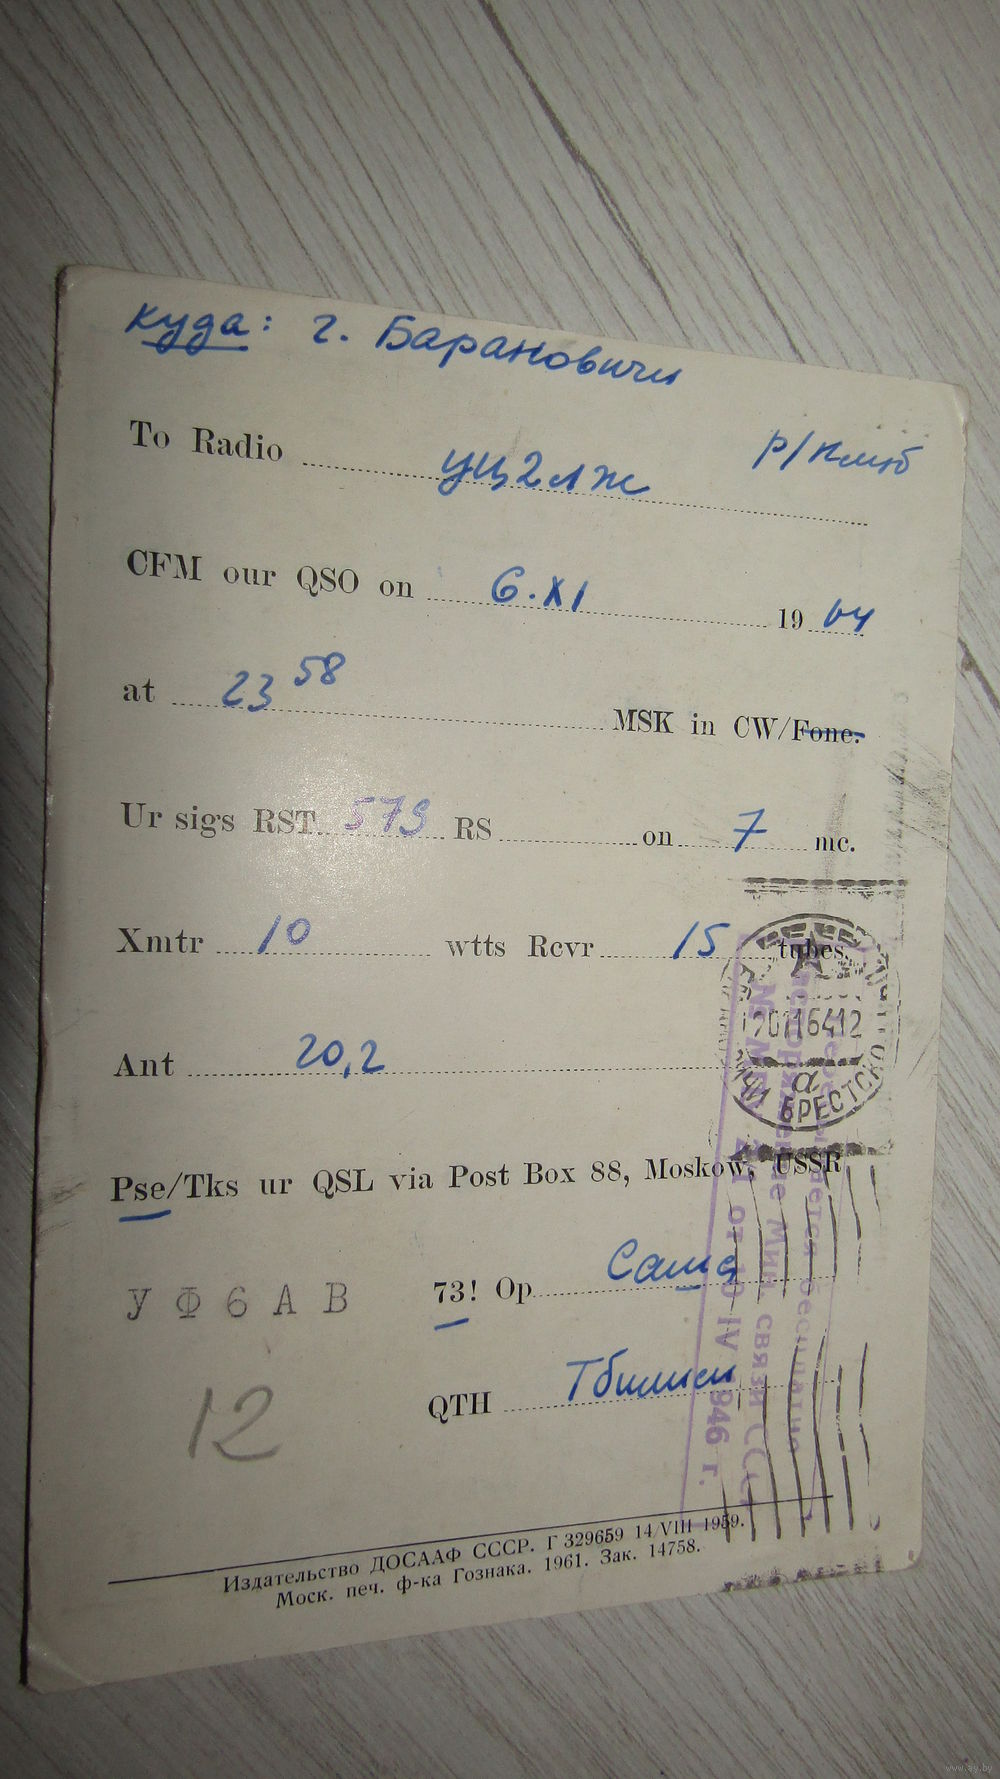 куда: г. Барановичи
To Radio уц2лж р/клуб
CFM our QSO on 6.XI 1964
at 23 58 MSK in CW/Fone.
Ur sigs RST 579 RS on 7 mc.
Xmtr 10 wtts Rcvr 15 tubes.
Ant 20,2
Pse/Tks ur QSL via Post Box 88, Moskow, USSR
УФ6АВ 73! Op Саша
QTH Тбилиси
12
Издательство ДОСААФ СССР. Г 329659 14/VIII 1959.
Моск. печ. ф-ка Гознака. 1961. Зак. 14758.
БРЕСТСКО
бесплатно
Мин. связи СССР
от 10 IV 1946 г.
www.ay.by